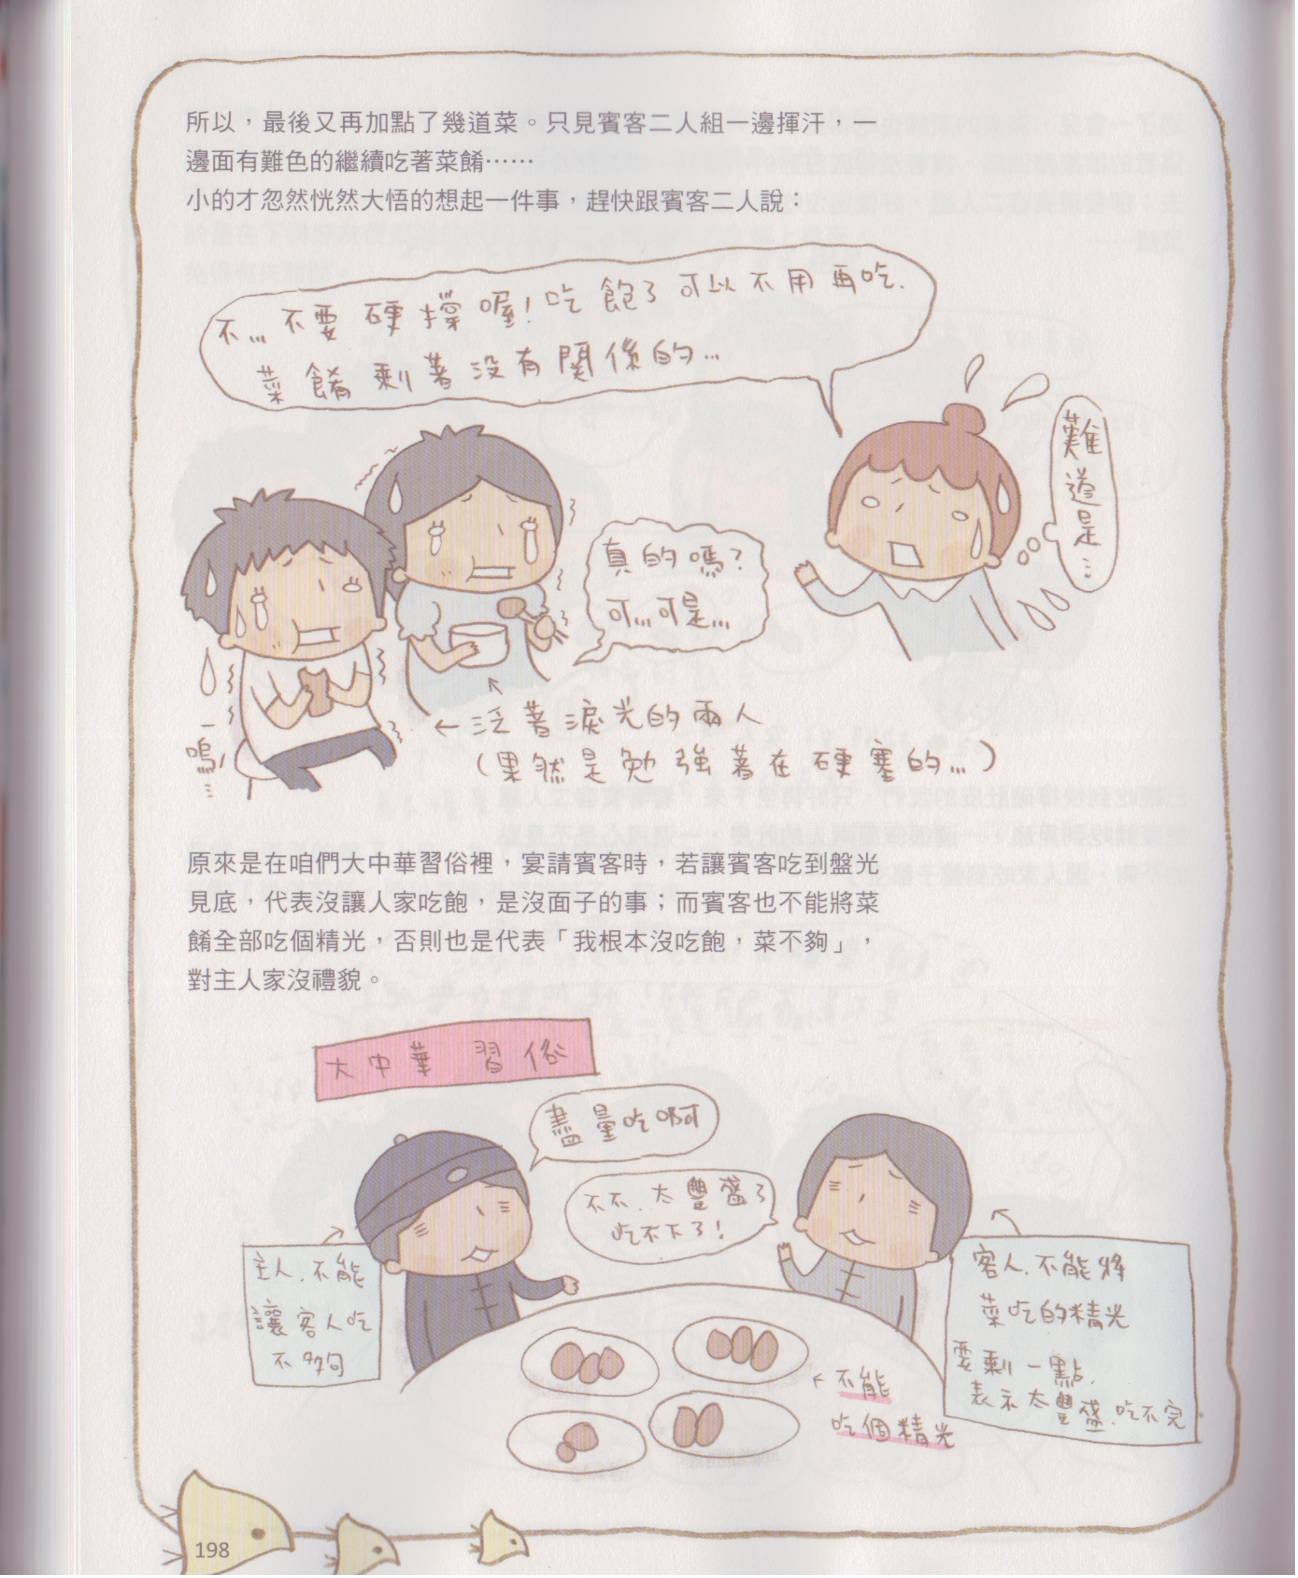 所以，最後又再加點了幾道菜。只見賓客二人組一邊揮汗，一
邊面有難色的繼續吃著菜餚……
小的才忽然恍然大悟的想起一件事，趕快跟賓客二人說：
不... 不要硬撐喔！吃飽了可以不用再吃.
菜餚剩著沒有關係的...
難道是...
真的嗎？
可...可是...
←泛著淚光的兩人
(果然是勉強著在硬塞的...)
嗚!...
原來是在咱們大中華習俗裡，宴請賓客時，若讓賓客吃到盤光
見底，代表沒讓人家吃飽，是沒面子的事；而賓客也不能將菜
餚全部吃個精光，否則也是代表「我根本沒吃飽，菜不夠」，
對主人家沒禮貌。
大中華習俗
盡量吃啊
不不.太豐盛了
吃不下了！
主人.不能
讓客人吃
不夠
客人.不能將
菜吃的精光
要剩一點.
表示太豐盛.吃不完
←不能
吃個精光
198